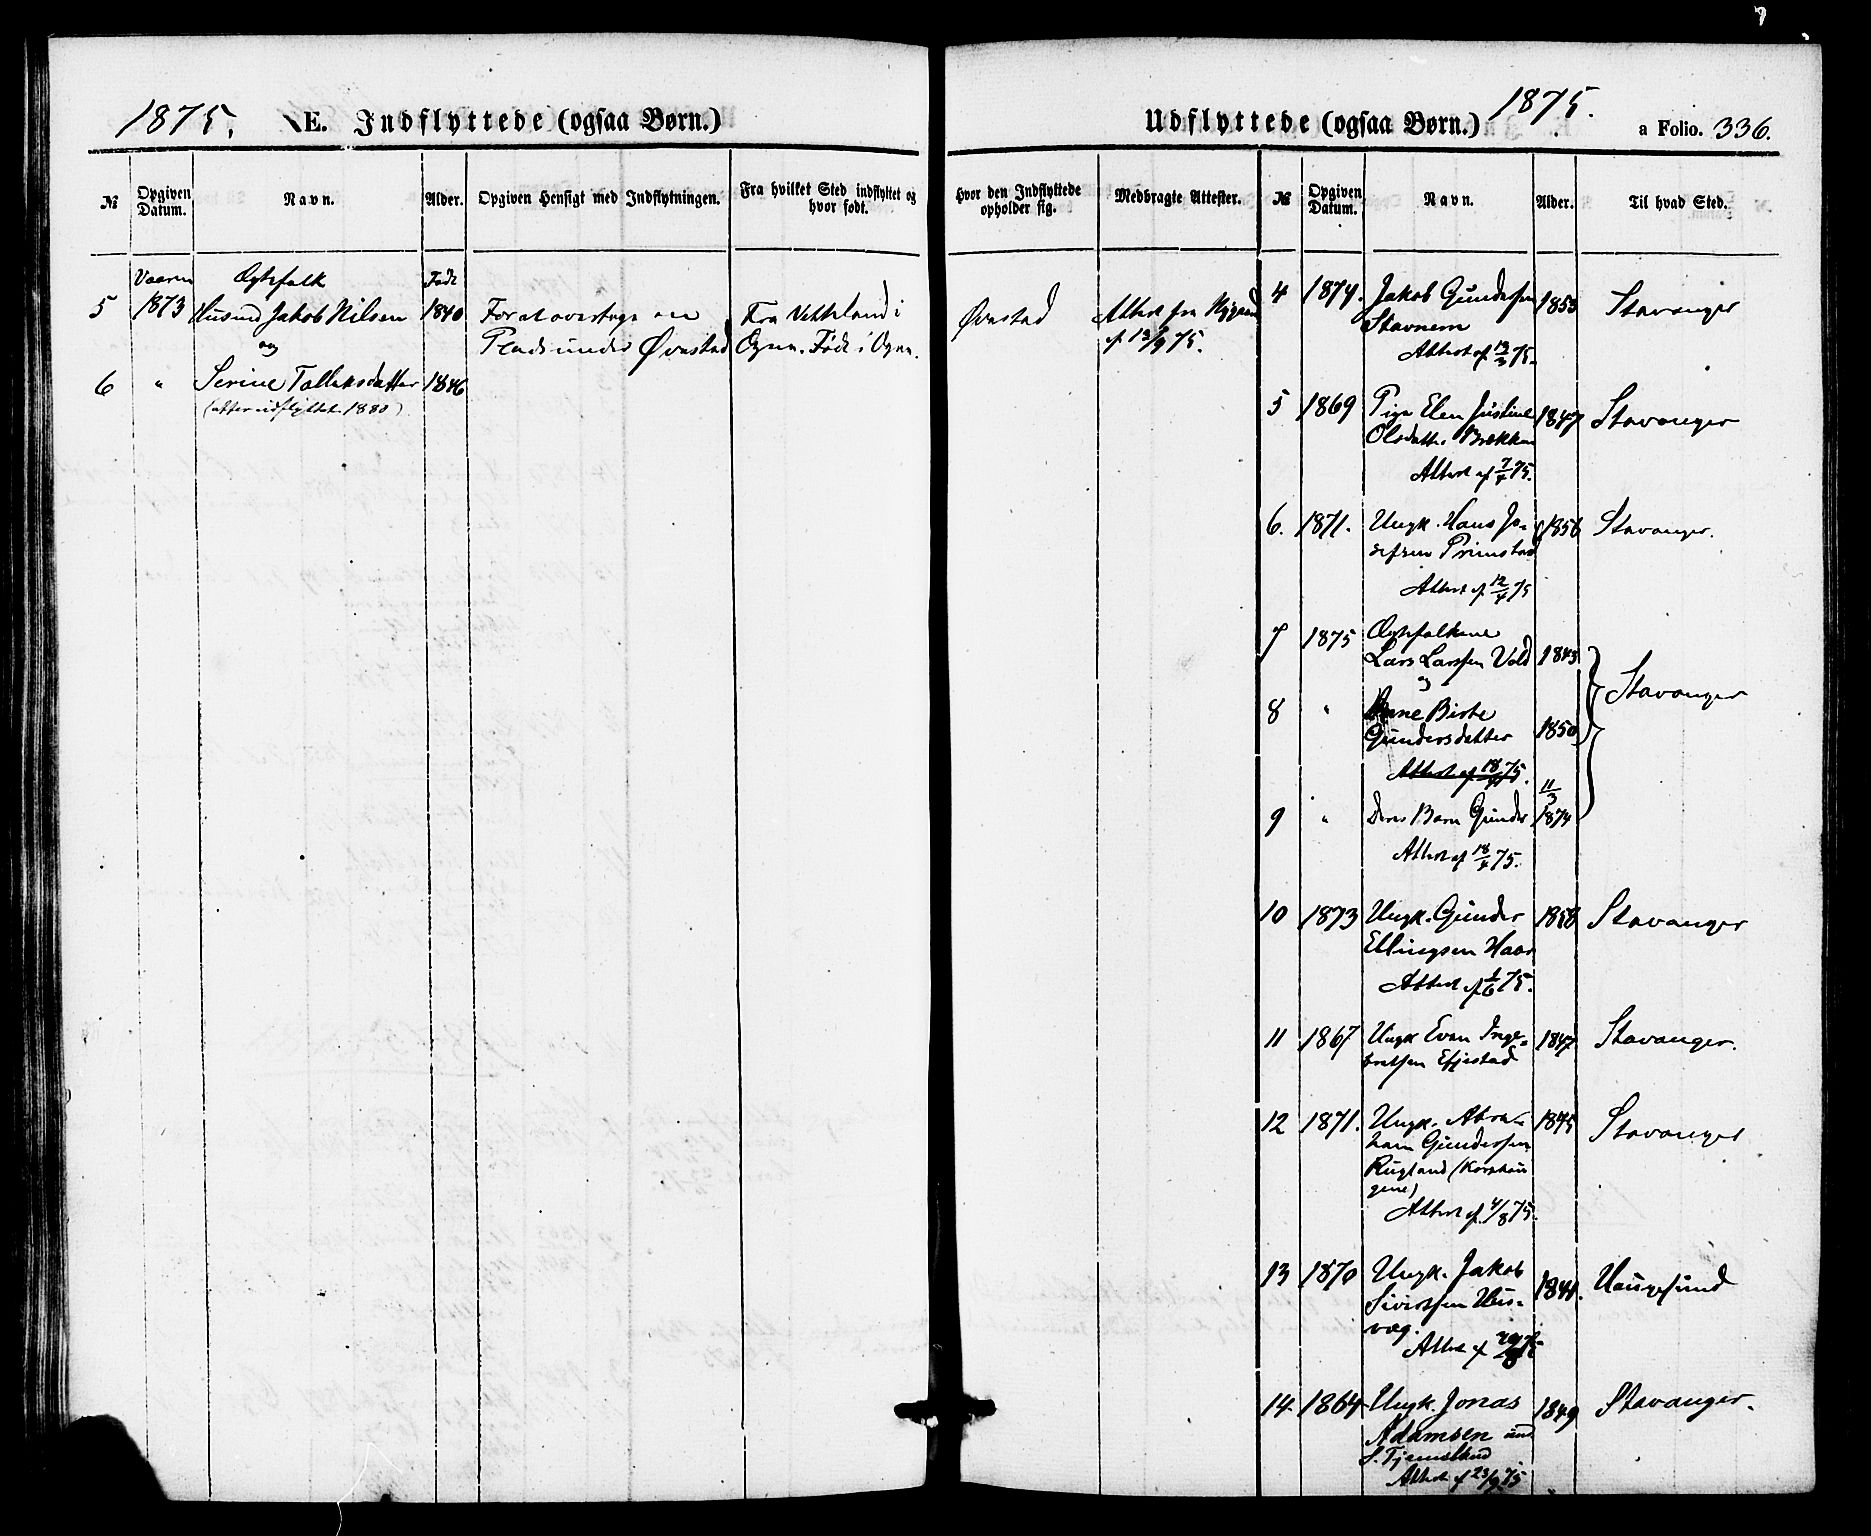 1875. E. Indflyttede (ogsaa Børn.)
№ Opgiven Datum. Navn. Alder. Opgiven Hensigt med Indflytningen. Fra hvilket Sted indflyttet og hvor født.
Vaaren Ægtefolk Født
5 1873 Husmd Jakob Nilsen 1840 For at overtage en Fra Vetteland i
og Plads under Øvestad Ogne. Født i Ogne.
6 " Serine Tollaksdatter 1846
(atter udflyttet 1880)
Udflyttede (ogsaa Børn.) 1875. a Folio. 336.
Hvor den Indflyttede opholder sig. Medbragte Attester. № Opgiven Datum. Navn. Alder. Til hvad Sted.
Øvestad Attest fra
af 12/9 75.
4 1874. Jakob Gundersen 1853 Stavanger
Stavnem
Attest af 13/3 75.
5 1869 Pige Elen Justine 1847 Stavanger
Olsdatter Brekken
Attest af 7/4 75.
6. 1871. Ungk. Hans Jo- 1856 Stavanger.
sefsen Primstad
Attest af 12/4 75
7 1875 Ægtefolkene
Lars Larssen Vold 1843
og Stavanger
8 " Anne Birte
Gundersdatter 1850
Attest af 18/4 75.
11/3
9 " Deres Barn Gunder 1874
Attest af 18/4 75.
10 1873 Ungk. Gunder 1858 Stavanger
Ellingsen Haar
Attest af 1/6 75.
11 1867 Ungk Even Inge- 1847 Stavanger.
bretsen Efjestad
12 1871. Ungk. Abra- 1845 Stavanger
ham Gundersen
Rugland (Korshau
gene)
Attest af 4/8 75.
13 1870 Ungk. Jakob 1844. Haugesund
Sivertsen Hus-
væg.
Attest af
14. 1864 Ungk. Jonas 1849 Stavanger.
Adamsen und.
S. Tjemsland
Attest af 23/9 75